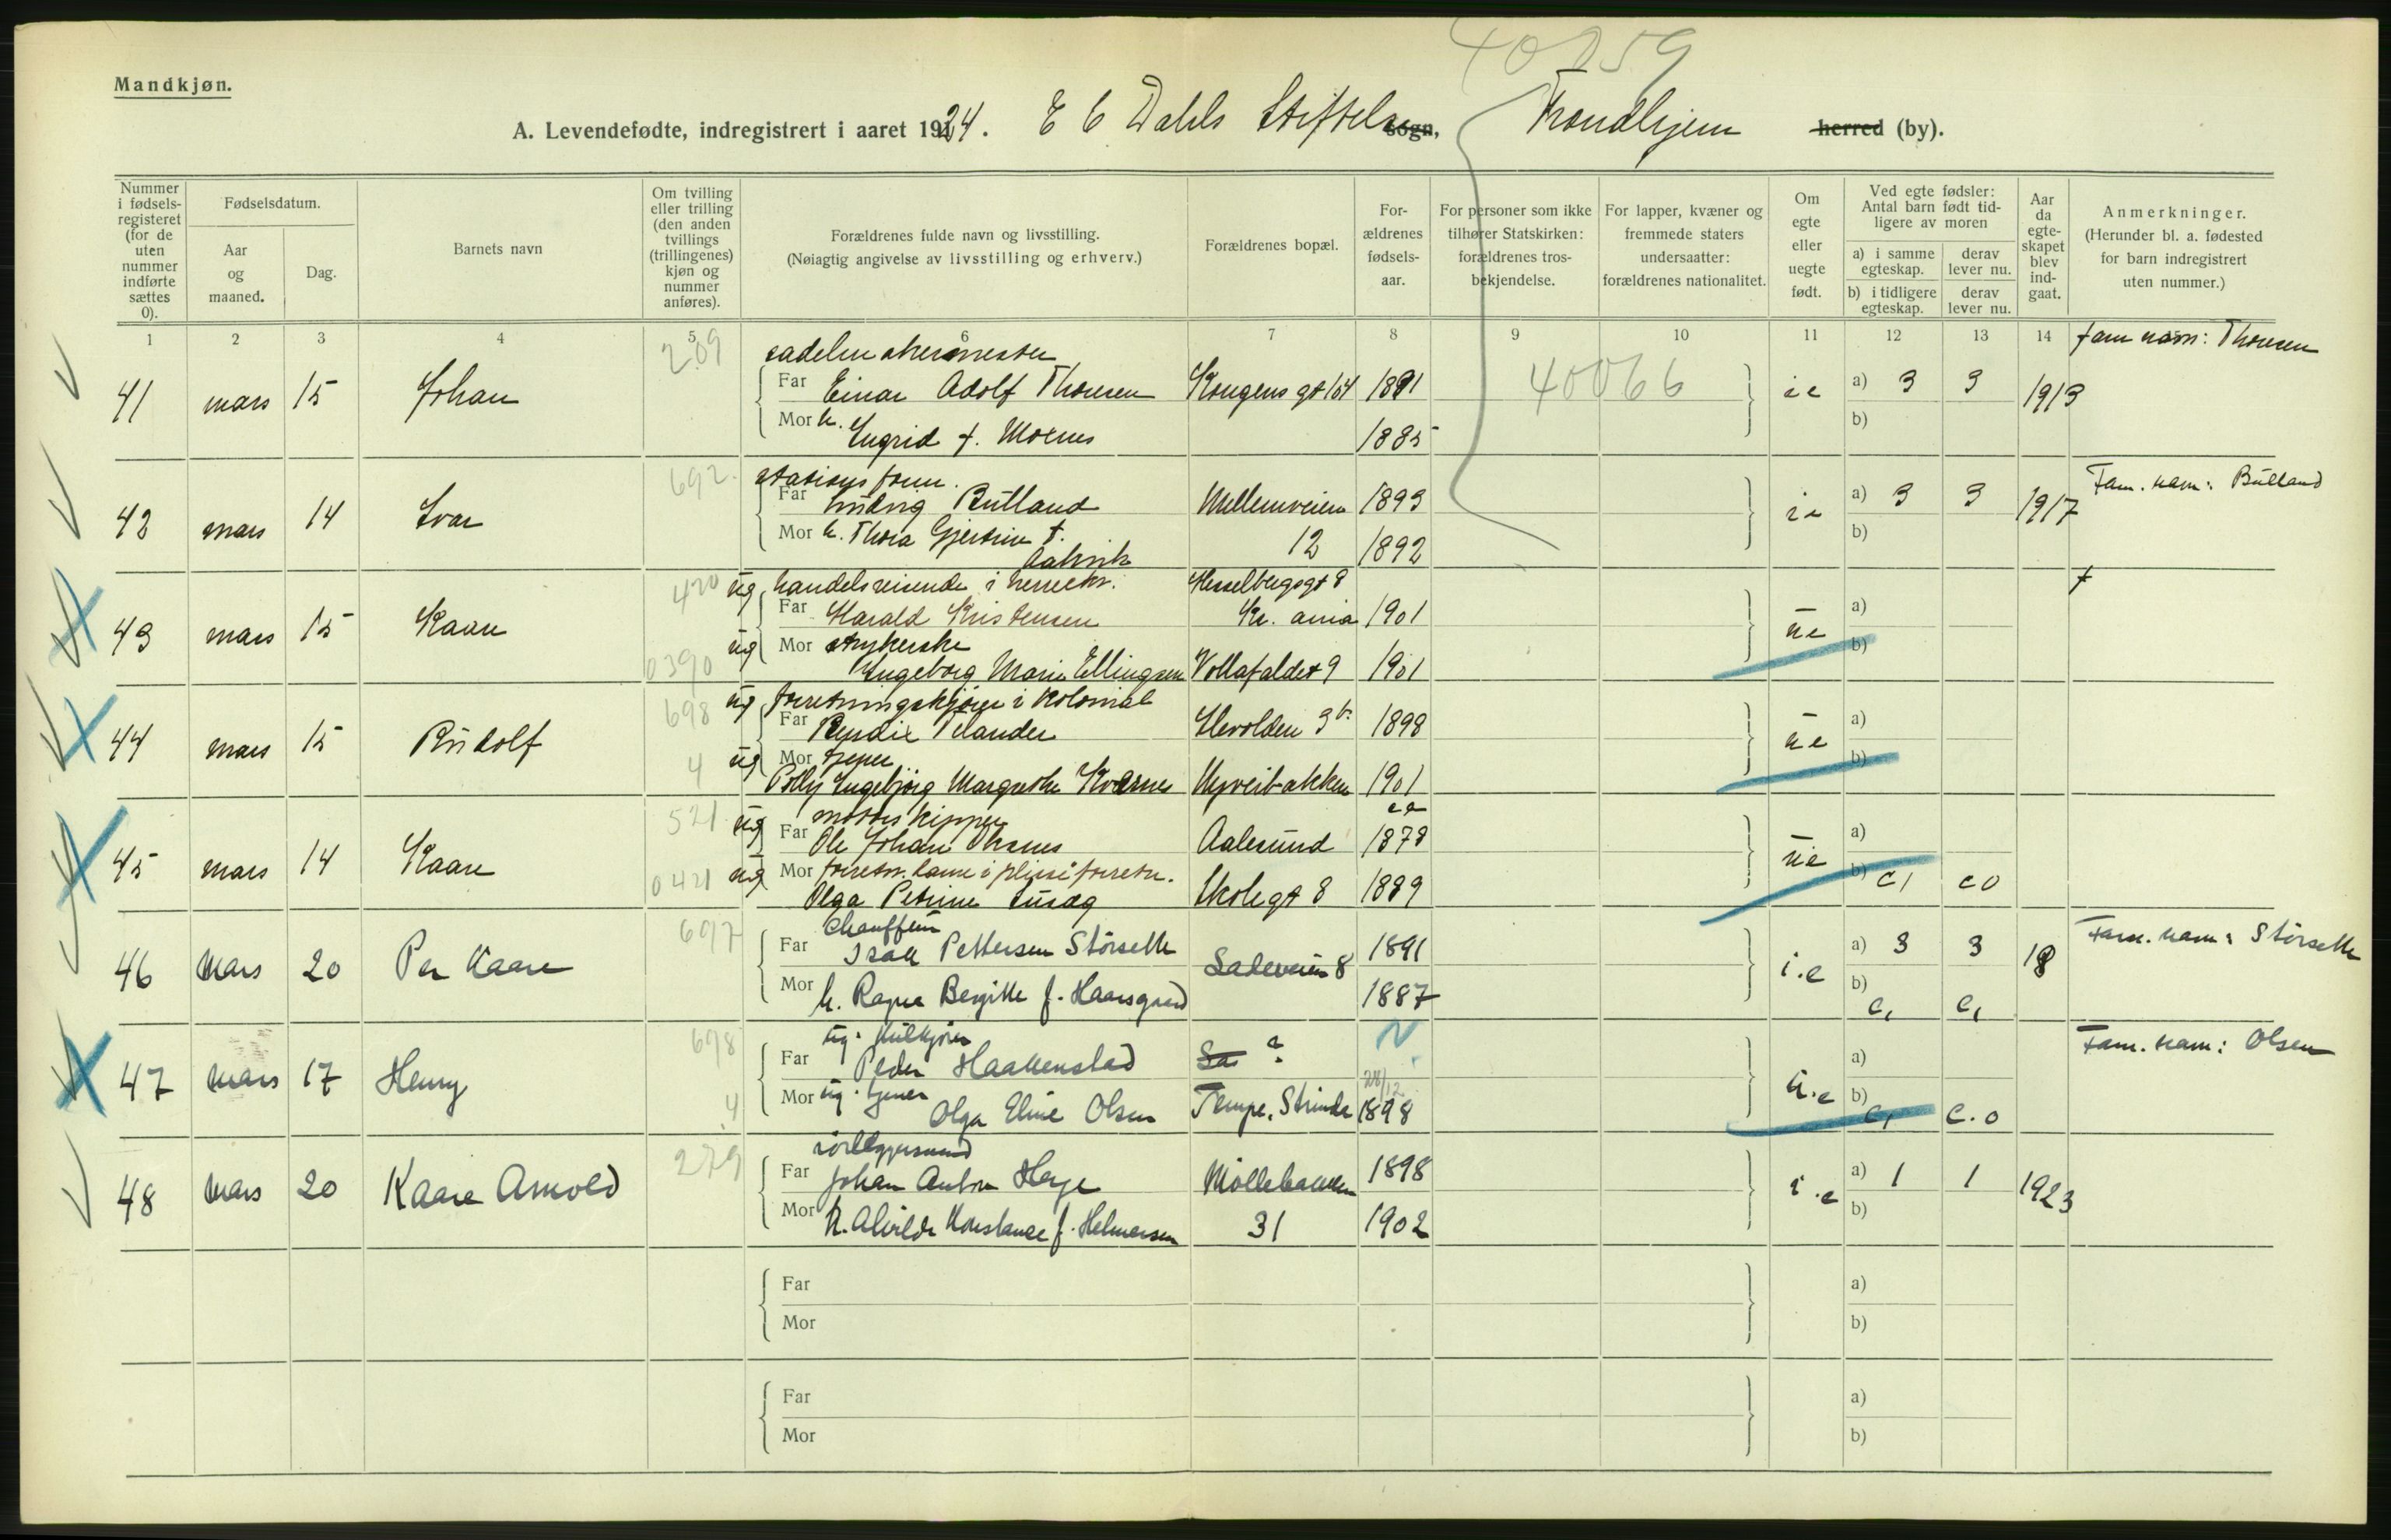 40059
Mandkjøn.
A. Levendefødte, indregistrert i aaret 1924. E C Dahls Stiftelse sogn, Trondhjem herred (by).
Nummer i fødsels-registeret (for de uten nummer indførte sættes 0).
Fødselsdatum.
Aar og maaned.
Dag.
Barnets navn
Om tvilling eller trilling (den anden tvillings (trillingenes) kjøn og nummer anføres).
Forældrenes fulde navn og livsstilling.
(Nøiagtig angivelse av livsstilling og erhverv.)
Forældrenes bopæl.
For-ældrenes fødsels-aar.
For personer som ikke tilhører Statskirken: forældrenes tros-bekjendelse.
For lapper, kvæner og fremmede staters undersaatter: forældrenes nationalitet.
Om egte eller uegte født.
Ved egte fødsler: Antal barn født tid-ligere av moren
a) i samme egteskap.
derav lever nu.
b) i tidligere egteskap.
derav lever nu.
Aar da egte-skapet blev ind-gaat.
Anmerkninger.
(Herunder bl. a. fødested for barn indregistrert uten nummer.)
1 2 3 4 5 6 7 8 9 10 11 12 13 14
209 fam navn: Thonsen
41 mars 15 Johan Far Einar Adolf Thonsen Kongens gt 104 1881 40066 ie a) 3 3 1913
Mor h. Ingrid f. Moenes 1885 b)
692 stasjons form. Fam. navn: Bulland
42 mars 14 Ivar Far Ludvig Bulland Mellemveien 1893 ie a) 3 3 1917
Mor h. Thora Gjertine f. 12 1892 b)
420 ug handelsreisende i Hesselbergsgt 8
43 mars 15 Kaare Far Harald Kristensen Kr. ania 1901 ue a)
0390 ug Mor strykerske b)
Ingeborg Marie Ellingsen Vollafaldet 9 1901
698 ug forretningskjører i kolonial
44 mars 15 Rudolf Far Telander Ilevolden 1898 ue a)
4 ug Mor tjener b)
Polly Ingebjørg Margrethe Kvernes Nyveibakken 1901
521 ug motorskipper ca
45 mars 14 Kaare Far Ole Johan Aalesund 1878 ue a)
0421 ug Mor forretn. dame i b) c1 c0
Olga Petrine Skolegt 8 1889
697 Chauffeur Fam. navn: Størseth
46 Mars 20 Per Kaare Far Isak Pettersen Størseth Ladeveien 8 1891 i.e a) 3 3 18
Mor h. Ragna Bergitte f. Haarsgaard 1887 b) c1 c1
698 ug. N Fam. navn: Olsen
47 Mars 17 Henry Far Peder Haakenstad ? u.e a)
4 Mor ug. tjener 28/12 b) c1 c.0
Olga Eline Olsen Tempe, Strinda 1898
279 rørleggersvend
48 Mars 20 Kaare Arnold Far Johan Anton Møllebakken 1898 i.e a) 1 1 1923
Mor h. Alvilde Konstanse f. Helmersen 31 1902 b)
Far a)
Mor b)
Far a)
Mor b)